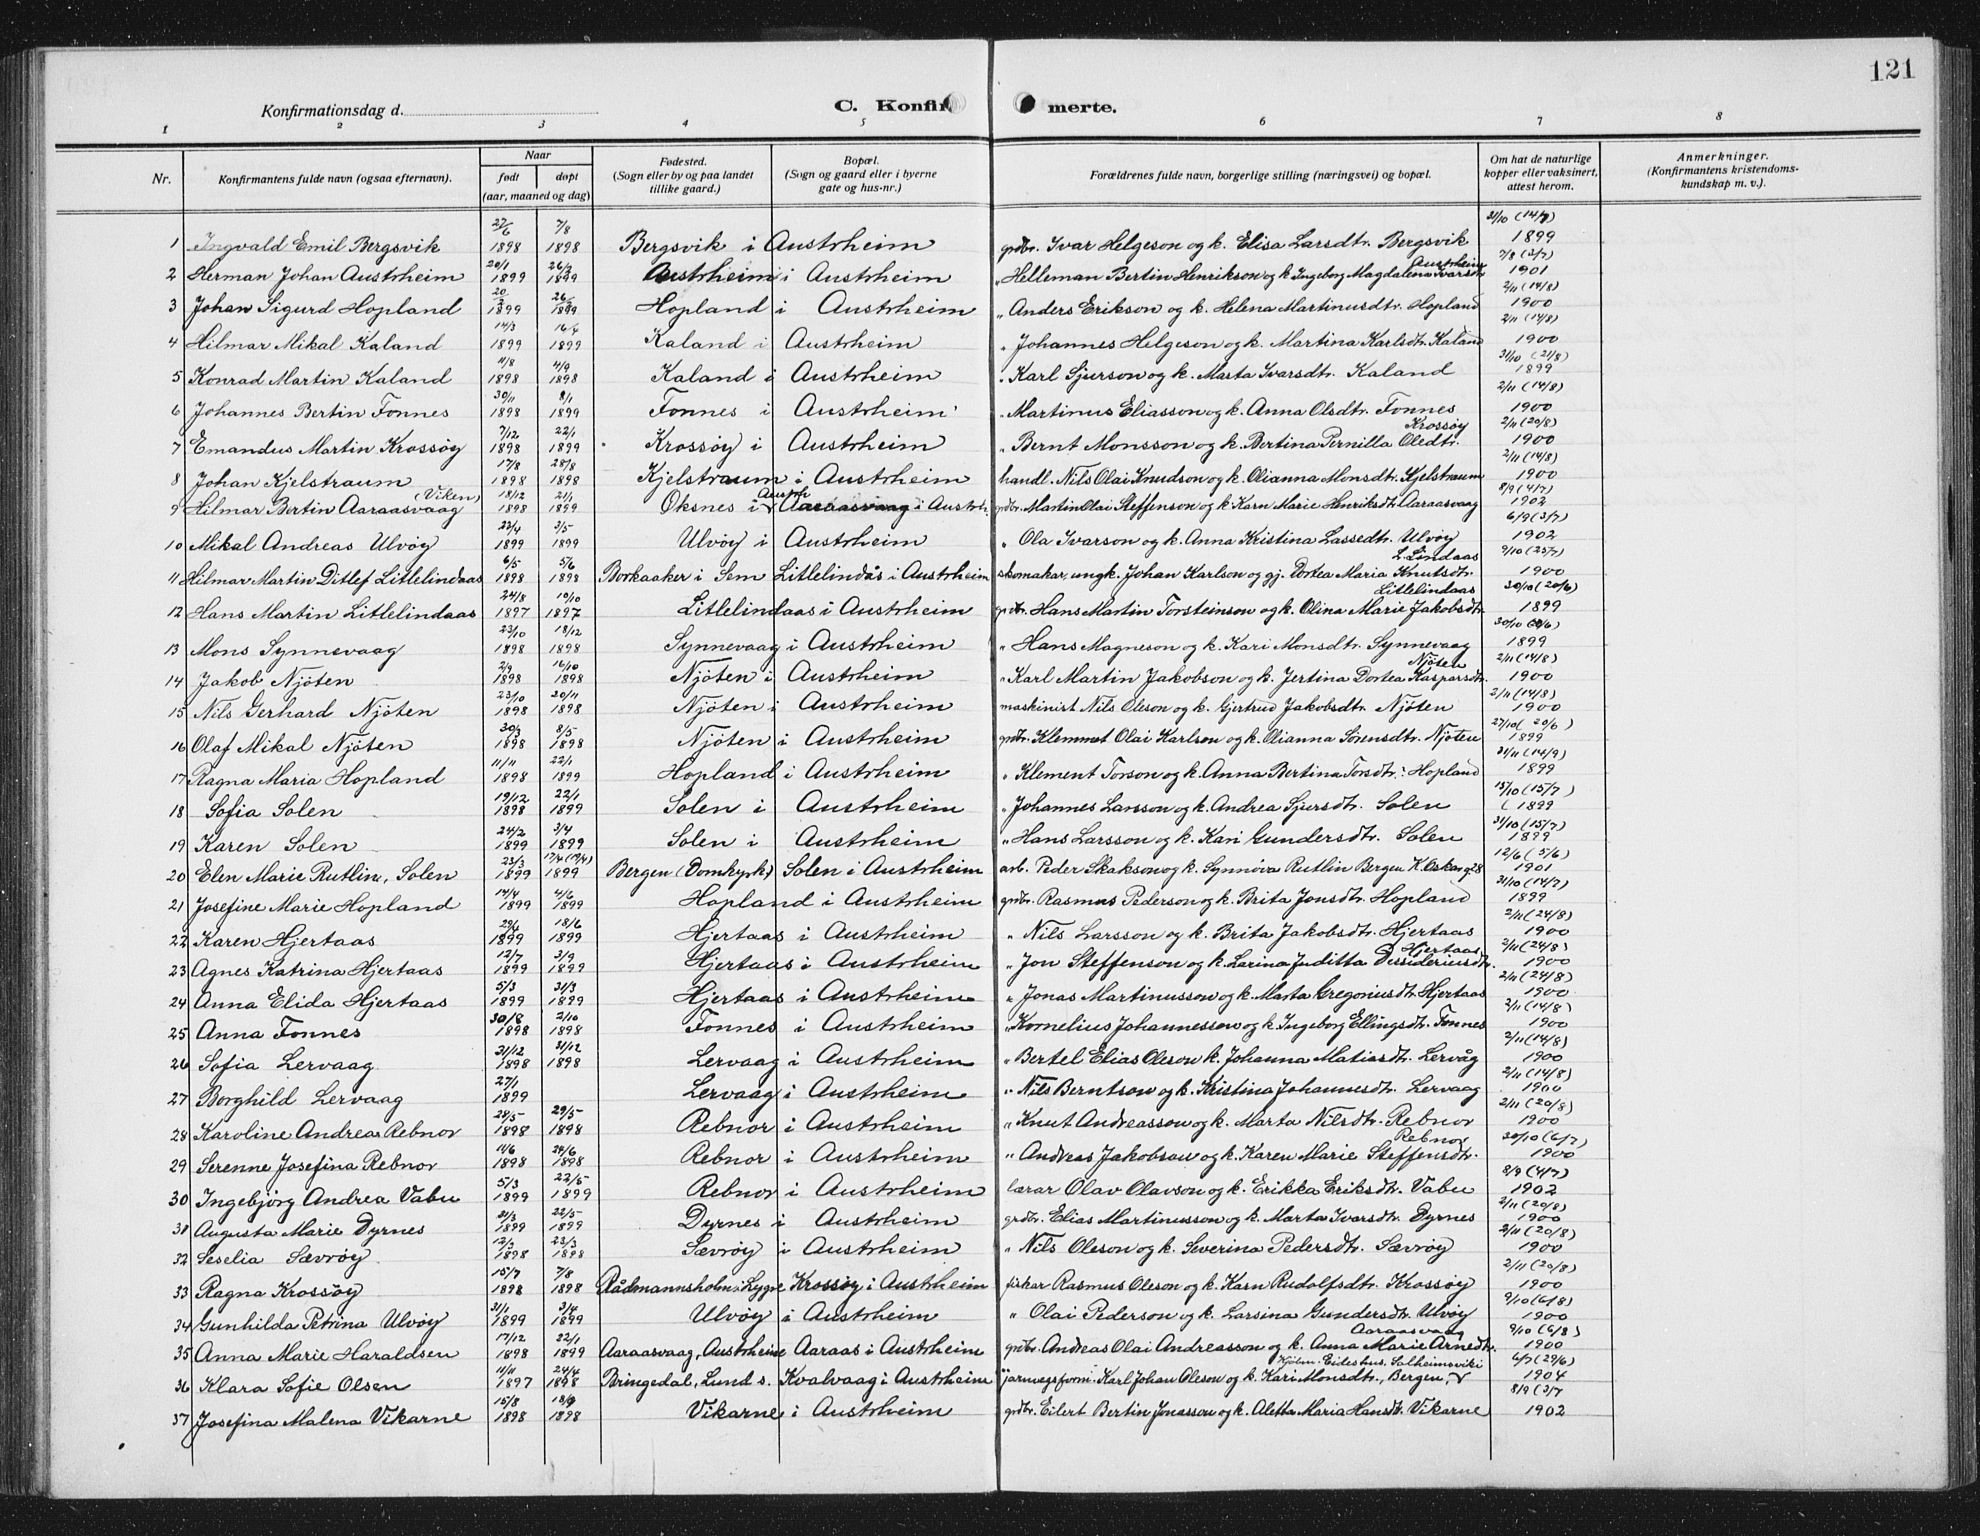 121
Konfirmationsdag d.
C. Konfirmerte.
1 2 3 4 5 6 7 8
Nr. Konfirmantens fulde navn (ogsaa efternavn). Naar født døpt (aar, maaned og dag) Fødested. (Sogn eller by og paa landet tillike gaard.) Bopæl. (Sogn og gaard eller i byerne gate og hus-nr.) Forældrenes fulde navn, borgerlige stilling (næringsvei) og bopæl. Om hat de naturlige kopper eller vaksinert, attest herom. Anmerkninger. (Konfirmantens kristendomskundskap m. v.).
1 Ingvald Emil Bergsvik 27/6 1898 7/8 1898 Bergsvik i Austrheim grdbr. Ivar Helgeson og k. Elisa Larsdtr. Bergsvik 31/10 (14/7) 1899
2 Herman Johan Austrheim 20/1 1899 26/2 1899 Austrheim i Austrheim " Helleman Bertin Henrikson og k. Ingeborg Magdalena Ivarsdtr Austrheim 7/8 (3/7) 1901
3 Johan Sigurd Hopland 1899 1899 Hopland i Austrheim " Anders Erikson og k. Helena Martinusdtr. Hopland 2/11 (14/8) 1900
4 Hilmar Mikal Kaland 14/3 1899 1899 Kaland i Austrheim " Johannes Helgeson og k. Martina Karlsdtr. Kaland 2/11 (14/8) 1900
5 Konrad Martin Kaland 11/8 1898 4/9 1898 Kaland i Austrheim " Karl Sjurson og k. Marta Ivarsdtr. Kaland 31/10 (21/8) 1899
6 Johannes Bertin Fonnes 30/11 1898 8/1 1899 Fonnes i Austrheim " Martinus Eliasson og k. Anna Olsdtr. Fonnes 2/11 (14/8) 1900
7 Emandus Martin Krossöy 7/12 1898 22/1 1899 Krossöy i Austrheim " Bernt Monsson og k. Bertina Pernilla Oledtr. Krossöy 2/11 (20/8) 1900
8 Johan Kjelstraum 17/8 1898 28/8 1898 Kjelstraum i Austrheim handl. Nils Olai Knudson og k. Olianna Monsdtr. Kjelstraum 2/11 (14/8) 1900
9 Hilmar Bertin Aaraasvaag (Viken) 18/12 1898 21/1 1899 Oksnes i Austrh Aaraasvaag i Austrh. grdbr. Martin Olai Steffenson og k. Karn Marie Henriksdtr. Aaraasvaag 8/9 (4/7) 1902
10 Mikal Andreas Ulvöy 22/4 1899 3/5 1899 Ulvöy i Austrheim " Ola Ivarson og k. Anna Kristina Lassedtr. Ulvöy 6/9 (3/7) 1902
11 Hilmar Martin Ditlef Litlelindaas 6/5 1898 5/6 1898 Borkaaker i Sem Litlelindås i Austrheim skomakar, ungk. Johan Karlson og gj. Dortea Maria Knutsdtr. L. Lindaas 9/10 (25/7) 1900
12 Hans Martin Litlelindaas 24/8 1897 10/10 1897 Litlelindaas i Austrheim grdbr. Hans Martin Torsteinson og k. Olina Marie Jakobsdtr. Litlelindaas 30/10 (20/6) 1899
13 Mons Synnevaag 23/10 1898 18/12 1898 Synnevaag i Austrheim " Hans Magneson og k. Kari Monsdtr. Synnevaag 30/10 (20/6) 1899
14 Jakob Njöten 2/9 1898 16/10 1898 Njöten i Austrheim " Karl Martin Jakobson og k. Jertina Dortea Kasparsdtr. Njöten 2/11 (14/8) 1900
15 Nils Gerhard Njöten 23/10 1898 20/11 1898 Njöten i Austrheim maskinist Nils Oleson og k. Gjertrud Jakobsdtr. Njöten 2/11 (14/8) 1900
16 Olaf Mikal Njöten 30/3 1898 8/5 1898 Njöten i Austrheim grdbr. Klemmet Olai Karlson og k. Olianna Sörensdtr. Njöten 27/10 (20/6) 1899
17 Ragna Maria Hopland 11/11 1898 22/1 1899 Hopland i Austrheim " Klement Torson og k. Anna Bertina Torsdtr. Hopland 31/11 (14/9) 1899
18 Sofia Solen 19/12 1898 22/1 1899 Solen i Austrheim " Johannes Larsson og k. Andrea Sjursdtr. Solen 15/10 (15/7) 1899
19 Karen Solen 24/2 1899 3/4 1899 Solen i Austrheim " Hans Larsson og k. Kari Gundersdtr. Solen 31/10 (15/7) 1899
20 Elen Marie Rutlin, Solen 23/3 1899 17/4 (19/4) 1899 Bergen (Domkyrk) Solen i Austrheim arb. Peder Skakson og k. Synnöva Rutlin Bergen K. Oskarsg. 28 12/6 (5/6) 1901
21 Josefine Marie Hopland 14/4 1899 4/6 1899 Hopland i Austrheim grdbr. Rasmus Pederson og k. Brita Jonsdtr. Hopland 31/10 (14/7) 1899
22 Karen Hjertaas 1899 18/6 1899 Hjertaas i Austrheim " Nils Larsson og k. Brita Jakobsdtr. Hjertaas 2/11 (24/8) 1900
23 Agnes Katrina Hjertaas 12/7 1899 3/9 1899 Hjertaas i Austrheim " Jon Steffenson og k. Larina Juditta Dessideriusdtr. Hjertaas 2/11 (24/8) 1900
24 Anna Elida Hjertaas 5/3 1899 31/3 1899 Hjertaas i Austrheim " Jonas Martinusson og k. Marta Gregoriusdtr. Hjertaas 2/11 (24/8) 1900
25 Anna Fonnes 30/8 1898 2/10 1898 Fonnes i Austrheim " Kornelius Johannesson og k. Ingeborg Ellingsdtr. Fonnes 2/11 (14/8) 1900
26 Sofia Lervaag 31/12 1898 31/12 1898 Lervaag i Austrheim " Bertel Elias Oleson k. Johanna Matiasdtr. Lervåg 2/11 (14/8) 1900
27 Borghild Lervaag 27/1 1899 Lervaag i Austrheim " Nils Berntson og k. Kristina Johannesdtr. Lervaag 2/11 (14/8) 1900
28 Karoline Andrea Rebnor 24/5 1898 29/5 1898 Rebnor i Austrheim " Knut Andreasson og k. Marta Nilsdtr. Rebnor 2/11 (20/8) 1900
29 Serenne Josefina Rebnor 11/6 1898 26/6 1898 Rebnor i Austrheim " Andreas Jakobson og k. Karen Marie Steffensdtr. Rebnor 30/10 (6/7) 1900
30 Ingebjörg Andrea Vabu 5/3 1899 22/5 1899 Rebnor i Austrheim lærar Olav Olavson og k. Erikka Eriksdtr. Vabu 8/9 (4/7) 1902
31 Augusta Marie Dyrnes 31/3 1899 22/5 1899 Dyrnes i Austrheim grdbr. Elias Martinusson og k. Marta Ivarsdtr. Dyrnes 2/11 (20/8) 1900
32 Seselia Sævröy 12/3 1898 23/3 1898 Sævröy i Austrheim " Nils Oleson og k. Severina Pedersdtr. Sævröy 2/11 (20/8) 1900
33 Ragna Krossöy 15/7 1898 7/8 1898 Rådmannsholm i Lygre Krossöy i Austrheim fiskar Rasmus Oleson og k. Karn Rudolfsdtr. Krossöy 2/11 (20/8) 1900
34 Gunhilda Petrina Ulvöy 31/1 1899 3/4 1899 Ulvöy i Austrheim " Olai Pederson og k. Larsina Gundersdtr. Ulvöy 9/10 (6/8) 1900
35 Anna Marie Haraldsen 17/12 1898 22/1 1899 Aaraasvaag, Austrheim Aaraas i Austrheim grdbr. Andreas Olai Andreasson og k. Anna Marie Arnedtr. Aaraasvaag 9/10 (6/8) 1900
36 Klara Sofie Olsen 11/11 1897 24/4 1898 Bringedal, Lund s. Kvalvaag i Austrheim jarnvegsform. Karl Johan Oleson og k. Kari Monsdtr., Bergen, Eideshus, Solheimsviki 6/7 (29/6) 1904
37 Josefina Malena Vikarne 15/8 1898 18/9 1898 Vikarne i Austrheim grdbr. Eilert Bertin Jonasson og k. Aletta Maria Hansdtr. Vikarne 8/9 (3/7 1902